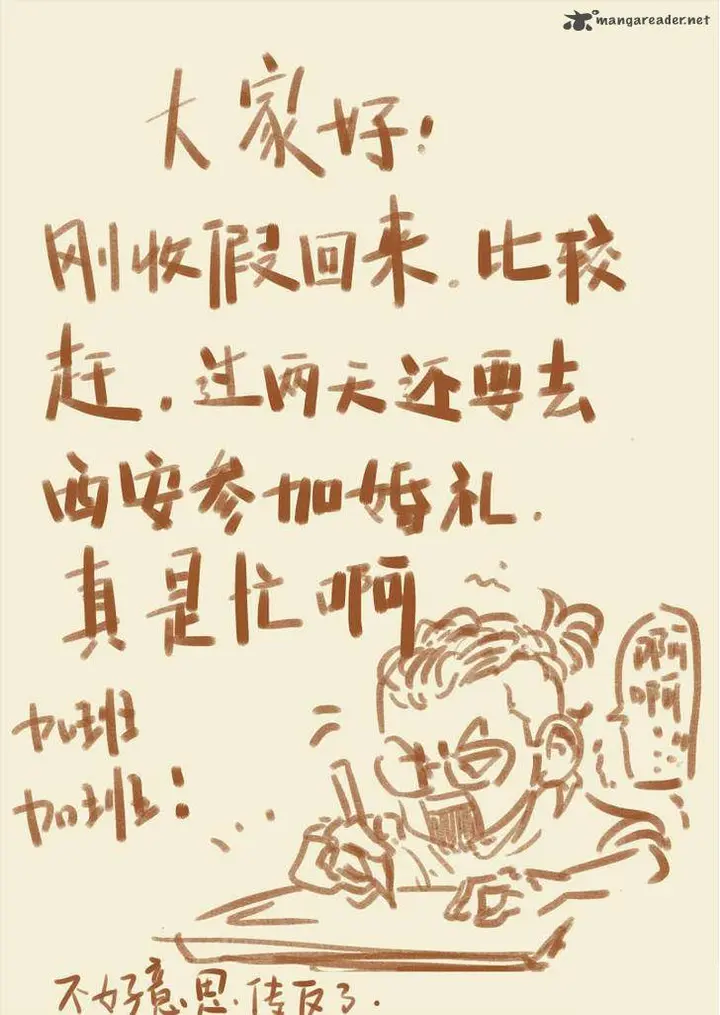 mangareader.net
大家好!
刚收假回来.比较
赶.过两天还要去
西安参加婚礼.
真是忙啊
啊
啊
...!!
加班
加班:
不好意思.传反了.